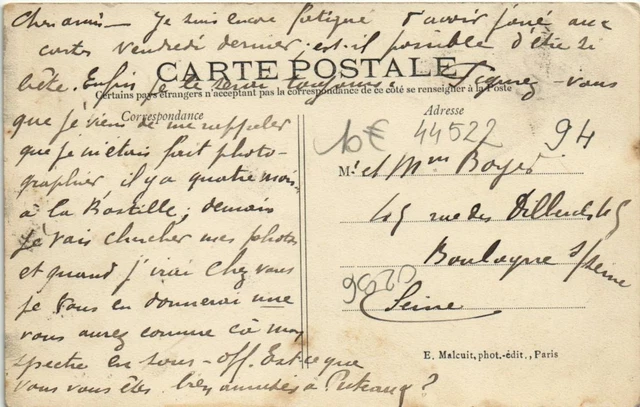 Chers amis — Je suis encore fatigué d'avoir joué aux
cartes Vendredi dernier, est-il possible d'être si
bête. Enfin je le serai toujours. Figurez-vous
CARTE POSTALE
Certains pays étrangers n'acceptant pas la correspondance de ce côté se renseigner à la Poste
Correspondance
que je viens de me rappeler
que je m'étais fait photo-
graphier il y a quatre mois
à la Bastille; demain
je vais chercher mes photos
et quand j'irai chez vous
je vous en donnerai une
vous aurez comme cà mon
spectre en sous-off. Est-ce que
vous vous êtes bien amusés à Puteaux?
Adresse
10€ 44522 94
M. et Mme Boyer
45 rue des
Boulogne s/Seine
9626
Seine
E. Malcuit, phot.-édit., Paris